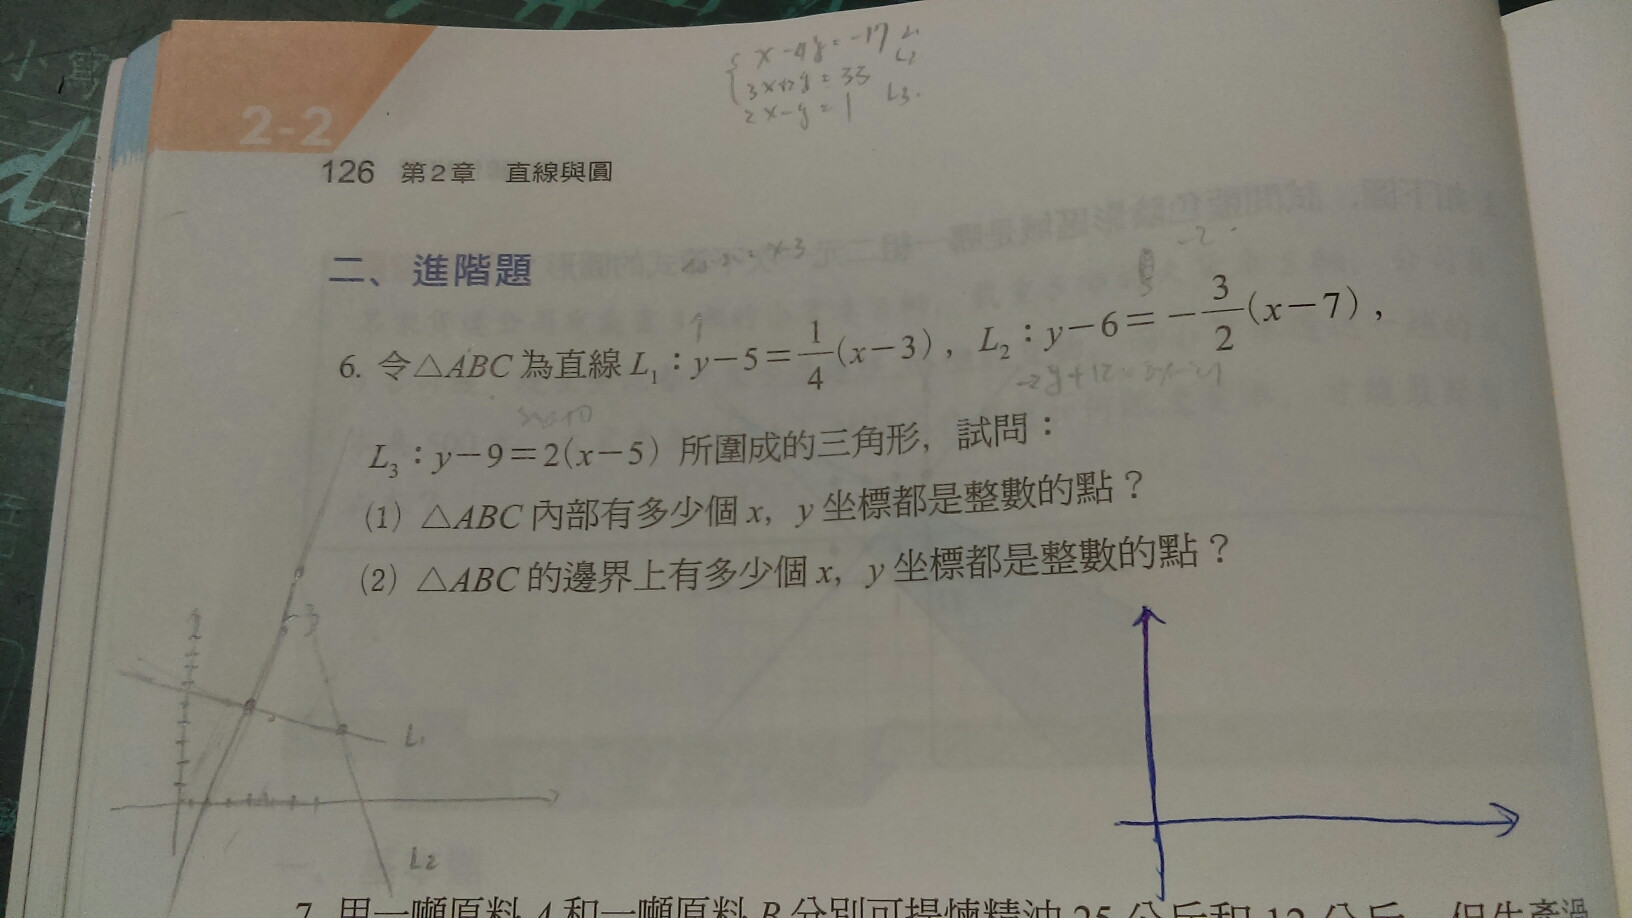 小寫
2-2
x-4y=-17 L₁
3x+2y=33 L₂
2x-y=1 L₃.
126 第2章 直線與圓
二、進階題
6. 令△ABC 為直線 L₁：y－5＝1/4(x－3)，L₂：y－6＝－3/2(x－7)，
L₃：y－9＝2(x－5) 所圍成的三角形，試問：
(1) △ABC 內部有多少個 x，y 坐標都是整數的點？
(2) △ABC 的邊界上有多少個 x，y 坐標都是整數的點？
L₁
L₂
7. 用一噸原料 A 和一噸原料 B 分別可提煉精油 25 公斤和 12 公斤